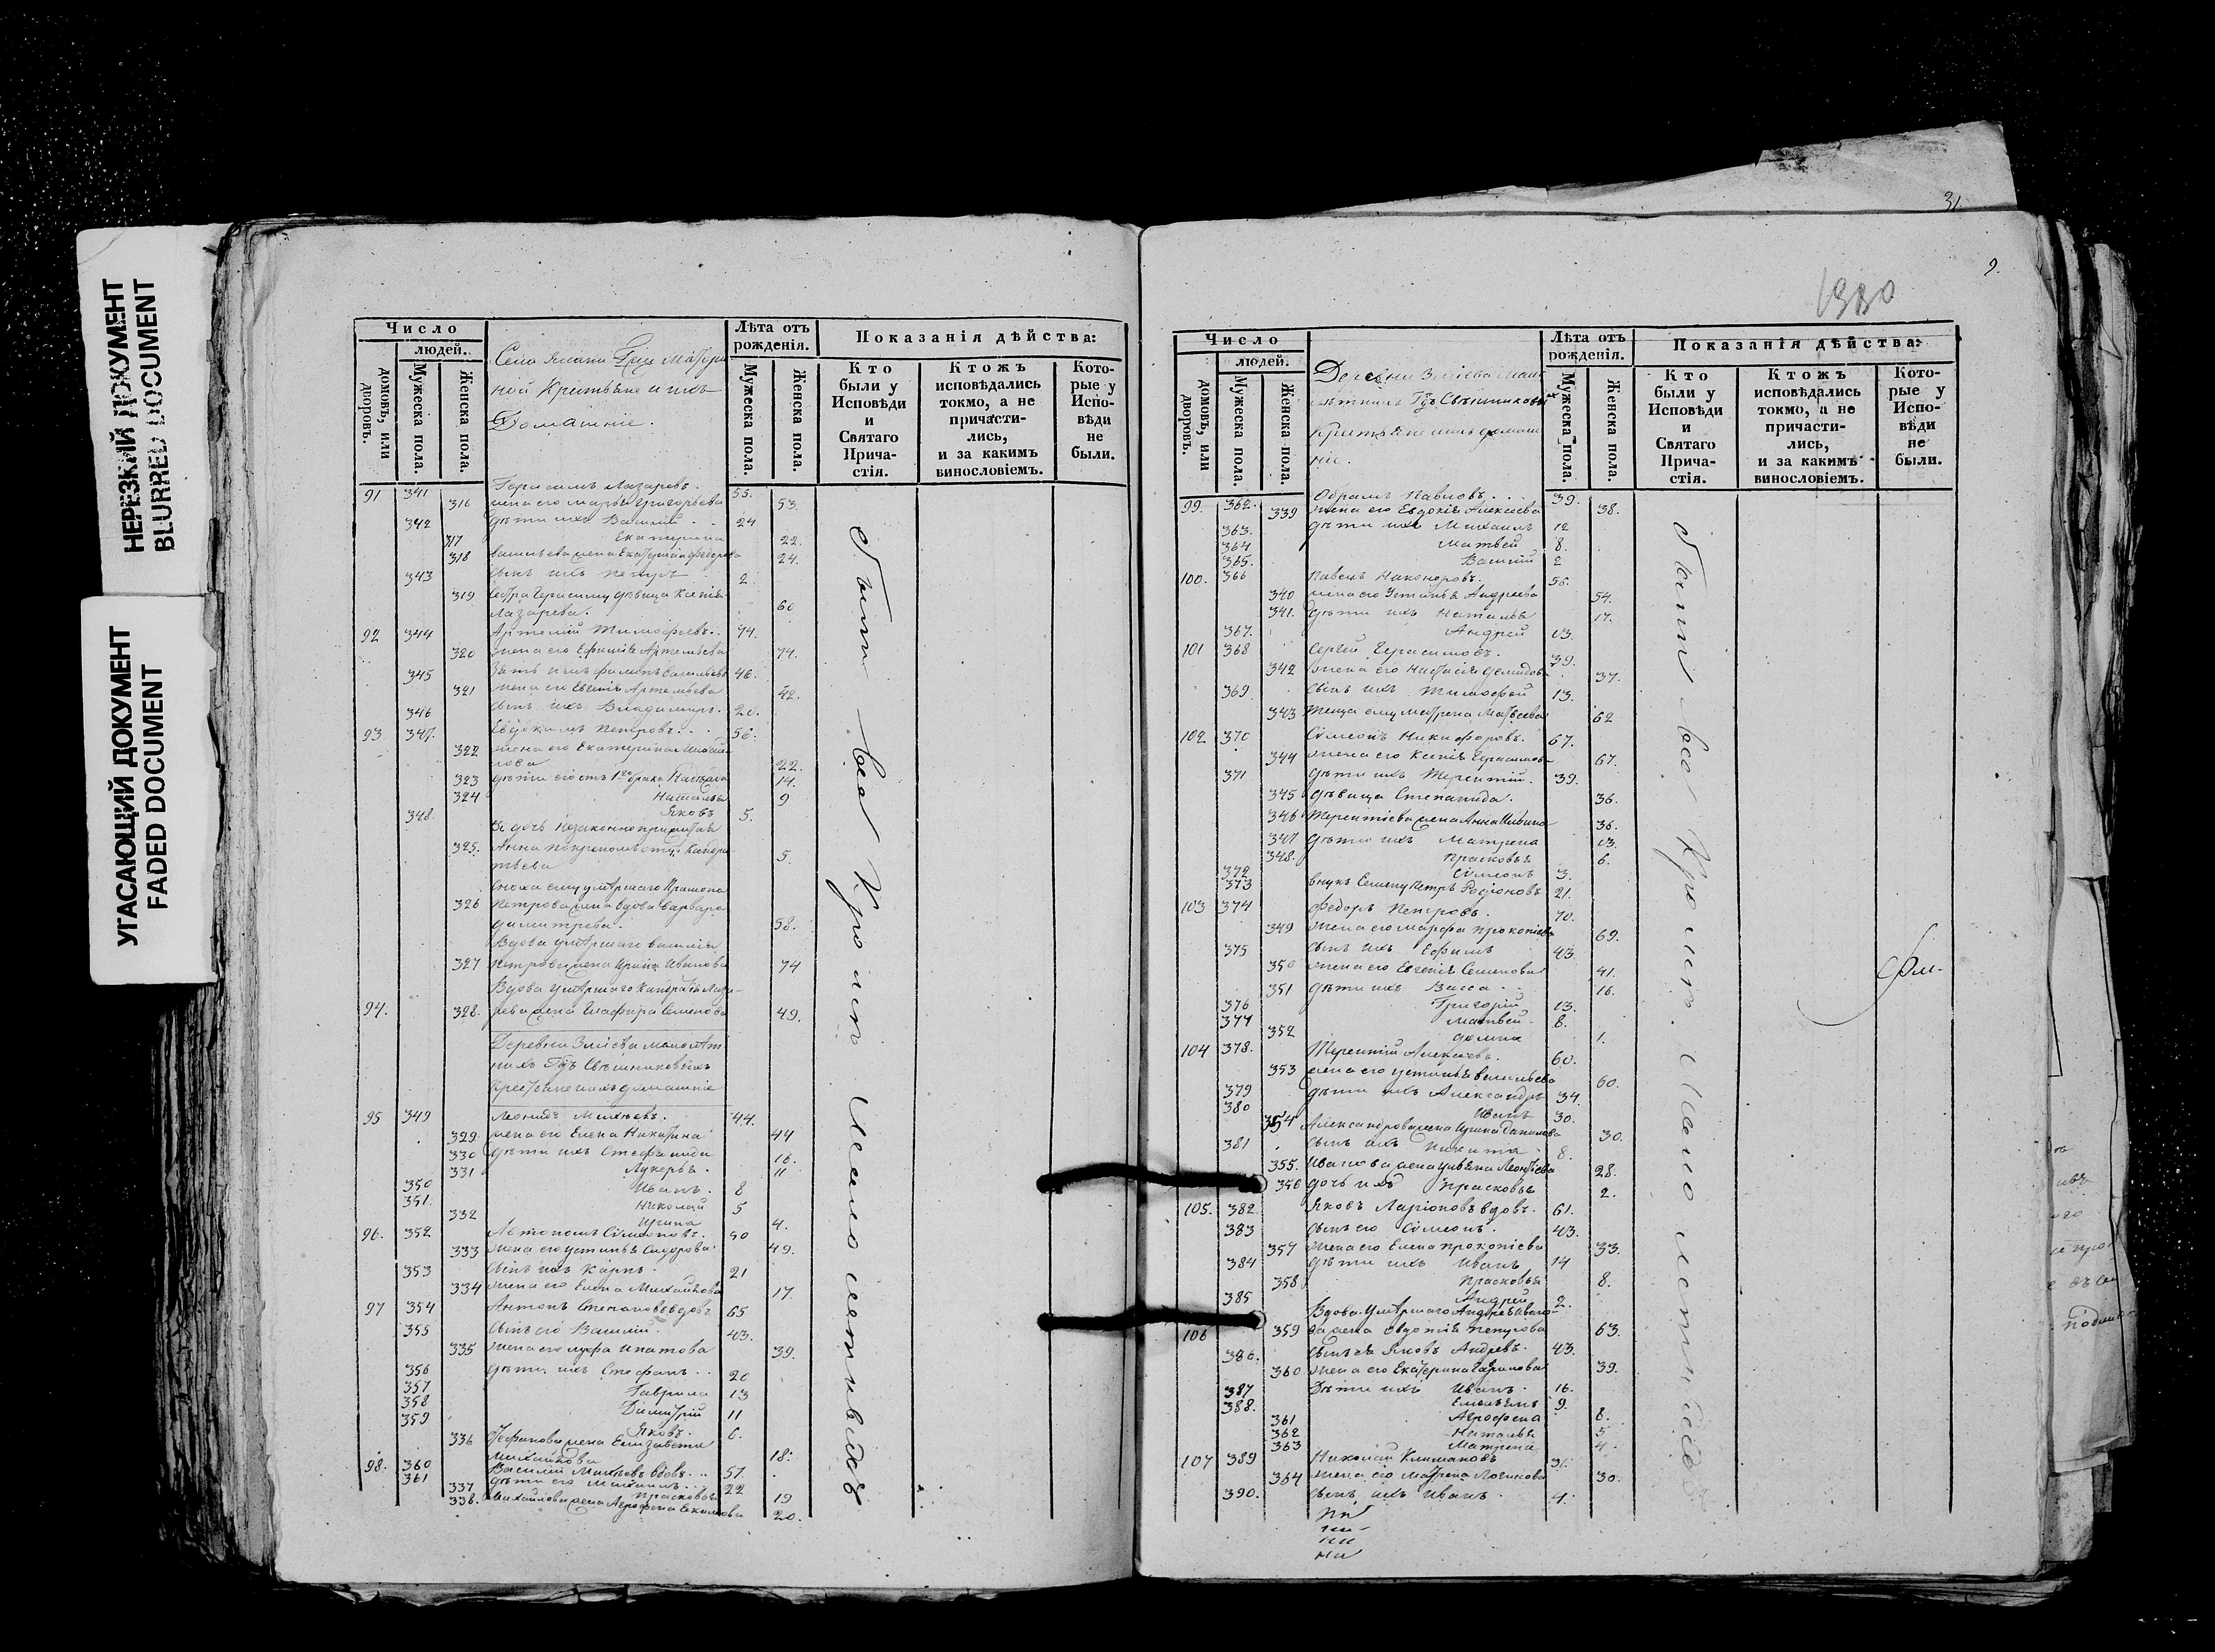 НЕРЕЗКИЙ ДОКУМЕНТ
BLURRED DOCUMENT
УГАСАЮЩИЙ ДОКУМЕНТ
FADED DOCUMENT
Число
людей.
домовъ, или дворовъ.
Мужеска пола.
Женска пола.
Села
ной Крестьяне и ихъ
Домашніе.
Лѣта отъ рожденія.
Мужеска пола.
Женска пола.
Показанія дѣйства:
Кто были у Исповѣди и Святаго Прича-стія.
Ктожъ исповѣдались токмо, а не причасти-лись, и за какимъ винословіемъ.
Кото-рые у Испо-вѣди не были.
91 341 Герасимъ Лазаревъ. 55.
316 жена его Марья Григорьева 53.
342 дѣти ихъ Василий 24
317 Екатерина 22.
318 Васильева жена Екатерина Федорова 24.
343 сынъ ихъ Петръ 2
319 Сестра Герасиму дѣвица Ксенія
Лазарева. 60
92 344 Артемий Тимофеевъ. 74.
320 жена его Артемьева 74.
345 Зять 46.
321 жена его Евгенія Артемьева 42.
346 сынъ ихъ Владимиръ. 20.
93 347. Евдокимъ Петровъ. 56.
322 жена его Екатерина Михай
лова 22.
323 дѣти его отъ 1го брака 14.
324 Наталья 9
348 Яковъ 5.
и дочь незаконноприжитая
325. Анна 5.
326 Петрова жена вдова Варвара
Димитрева. 58.
Вдова умершаго Василия
327 Петрова жена Ирина Иванова 74
94. 328. жена Глафира Семенова 49.
Деревни Зміева малолѣт
нихъ Гдъ Свѣшниковыхъ
Крестьяне и ихъ домашніе
95 349 Леонидъ Михѣевъ. 44.
329 жена его Елена Никитина 44
330 дѣти ихъ Стефанида 16.
331 Лукерья. 11
350 Иванъ. 8
351. Николай 5
332 Ирина 4.
96. 352 Симеоновъ. 50
333 жена его Устинья Сидорова 49.
353 сынъ ихъ Карпъ. 21
334 жена его Елена Михайлова 17.
97 354 Антонъ Степановъ вдовъ 65
355 сынъ его Василий. 43.
335 жена его Ипатова 39.
356 дѣти ихъ Стефанъ. 20
357 Гаврила 13
358 Димитрій 11
359 Яковъ. 6.
336 Стефанова жена Елизавета
Михайлова 18.
98. 360 Василий Михѣевъ вдовъ. 57.
361 дѣти его Михаилъ 22
337 Прасковья 19
338. Михайлова жена Агрофена Екимова 20.
были все кромѣ малолѣтнихъ
31
9.
1330
Число
людей.
домовъ, или дворовъ.
Мужеска пола.
Женска пола.
Деревни Зміева мало
лѣтнихъ Гдъ Свѣшниковыхъ
Крестьяне и ихъ домаш
ніе.
Лѣта отъ рожденія.
Мужеска пола.
Женска пола.
Показанія дѣйства:
Кто были у Исповѣди и Святаго Прича-стія.
Ктожъ исповѣдались токмо, а не причасти-лись, и за какимъ винословіемъ.
Кото-рые у Испо-вѣди не были.
99. 362. Абрамъ Павловъ. 39.
339 жена его Евдокія Алексѣева 38.
363. дѣти ихъ Михаилъ 12
364 Матвей 8.
365. Василий 2
100. 366 Павелъ Никоноровъ. 56.
340 жена его Устинья Андреева 54.
341. дѣти ихъ Наталья 17.
367. Андрей 13.
101 368 Сергей Герасимовъ. 39.
342 жена его Настасія Демидова 37.
369 сынъ ихъ Тимофей 13.
343 Теща ему Матрена Матвеева 62
102 370 Симеонъ Никифоровъ. 67.
344 жена его Ксенія Герасимова 67.
371 дѣти ихъ Терентій. 39.
345 дѣвица Степанида. 36.
346 Терентіева жена Анна 36.
347 дѣти ихъ Матрена 13.
348. Прасковья 6.
372 Симеонъ 3.
373 внукъ Семену Петръ Родіоновъ 21.
103 374 Федоръ Петровъ. 70.
349 жена его Марфа Прокопіева 69.
375 сынъ ихъ Ефимъ 43.
350 жена его Евгенія Семенова 41.
351 дѣти ихъ Васса 16.
376 Григорій 13.
377 Матвей 8.
352 Домна 1.
104 378. Терентій Алексѣевъ. 60.
353 жена его Устинья Васильева 60.
379 дѣти ихъ Александръ 34.
380 Иванъ 30.
354 Александрова жена Ирина Данилова 30.
381 сынъ ихъ Никита 8.
355. Иванова жена Ульяна Леонтіева 28.
356 дочь ихъ Прасковья 2.
105. 382 Яковъ Ларіоновъ вдовъ. 61.
383 сынъ его Симеонъ. 43.
357 жена его Елена Прокопіева 33.
384 дѣти ихъ Иванъ 14
358 Прасковья 8.
385 Андрей 2.
Вдова умершаго Андрея Ивано
106 359 ва жена Евдотія Петрова 63.
386. сынъ ея Яковъ Андреевъ. 43.
360 жена его Екатерина Гаврилова 39.
387 Дѣти ихъ Иванъ. 16.
388. Емельянъ 9.
361 Агрофена 8.
362 Наталья 5
363 Матрена 4.
107 389 Николай Климановъ 31.
364 жена его Матрена Логинова 30.
390. сынъ ихъ Иванъ. 4.
были все кромѣ малолѣтнихъ